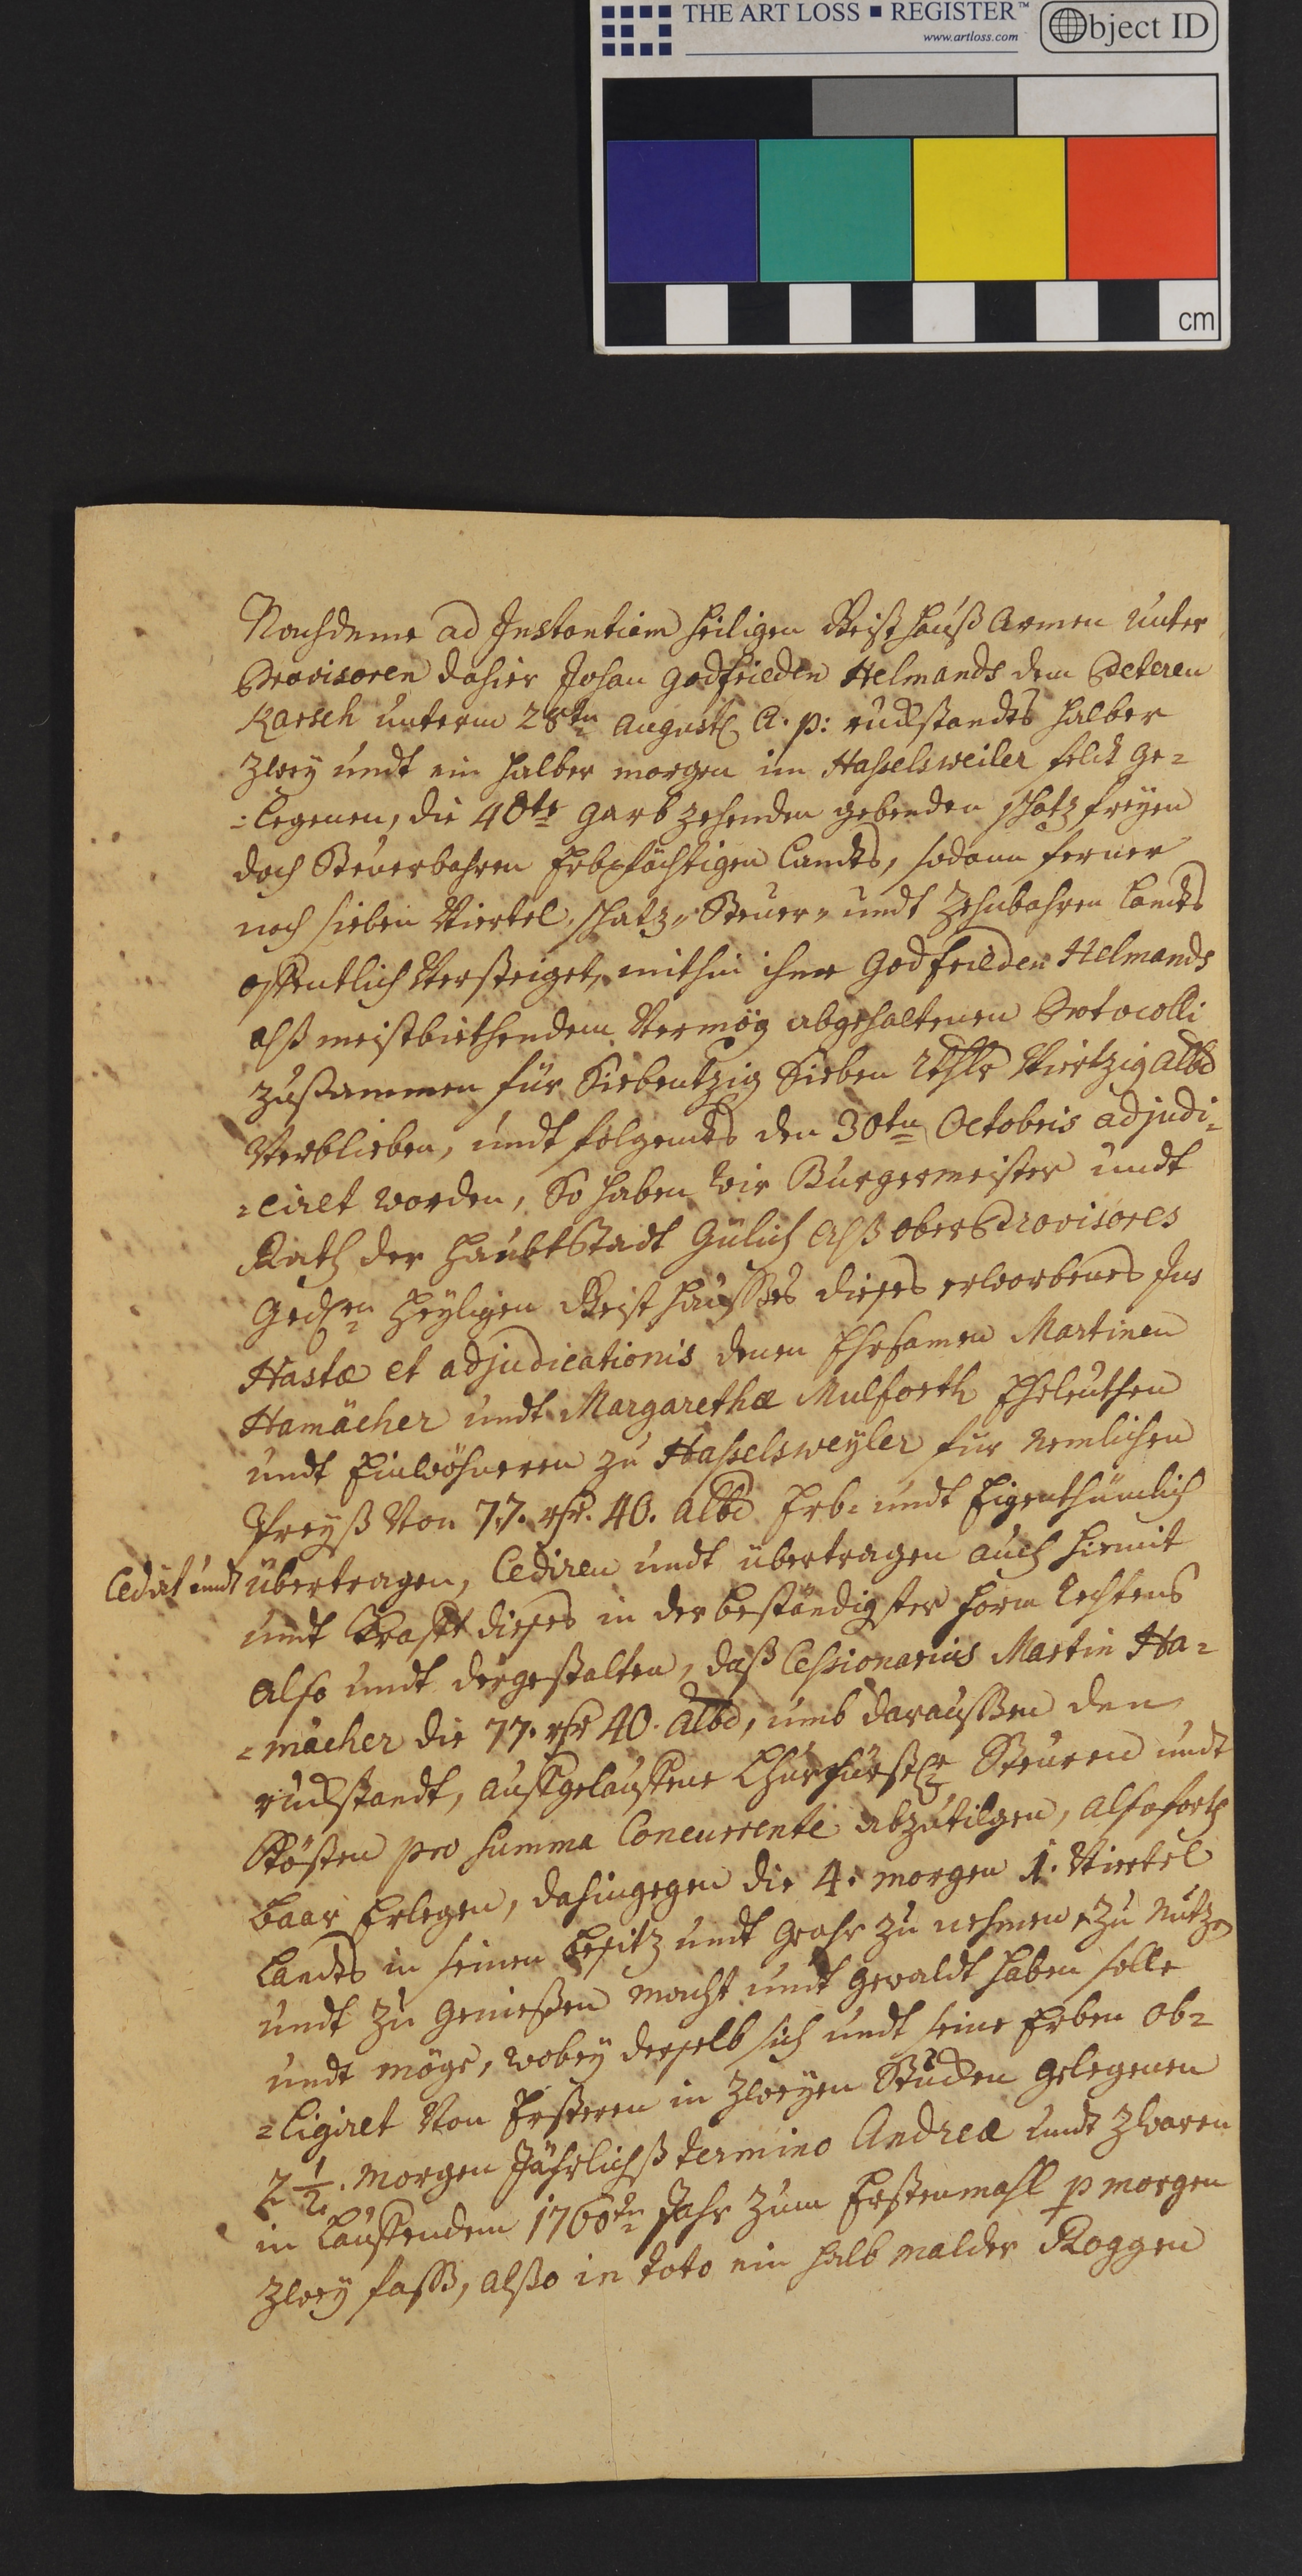 THE ART LOSS ▪ REGISTER™
www.artloss.com
Object ID
cm
Nachdeme ad Instantiam heiligen Geist hauß Armen unter
Provisoren dahier Johan Godfrieden Helmands dem Peteren
Karsch unterm 28ten August A. p: rückstandts halber
zwey undt ein halber morgen im Hasselsweiler feldt ge=
=legenen, die 40te garb zehenden gebenden schatz freyen
doch steuerbahren Erbpfächtigen Landts, sodann ferner
noch sieben Viertel schatz= steuer= undt zehnbahren Landts
offentlich Versteiget, mithin ihme Godfrieden Helmands
alß meistbiethendem Vermög abgehaltenen Protocolli
zusammen für Siebentzig Sieben Rthlr Viertzig Alb
Verblieben, undt folgendts den 30ten Octobris adjudi=
=ciret worden, So haben wir Burgermeister undt
Rath der Haubtstadt Gülich alß ober Provisores
gedln Heyligen Geist Haußes dieses erworbenes Jus
Hastæ et adjudicationis denen Ehrsamen Martinen
Hamächer undt Margarethæ Mulforth Eheleuthen
undt Einwöhneren zu Hasselsweyler für nemlichen
Preyß Von 77. rhr. 40. alb Erb= undt Eigenthümlich
Cedirt undt übertragen, Cediren undt übertragen auch hiemit
undt Krafft dieses in der beständigster form Rechtens
also undt dergestalten, daß Cessionarius Martin Ha=
=mächer die 77. rhr 40. alb, umb daraußen den
rückstandt, auffgelauffene Churfürstl Steuren undt
Kösten pro summa Concurrente abzutilgen, alsoforth
baar Erlegen, dahingegen die 4. morgen 1. Viertel
Landts in seinen besitz undt gewahr zu nehmen, zu nutzen
undt zu genießen macht undt gewaldt haben solle
undt möge, wobey derselb sich undt seine Erben ob=
=ligiret Von Ersteren in zweyen Stücken gelegenen
2 1/2. morgen Jährlichß termino Andreæ undt zwaren
in lauffendem 1760ten Jahr zum Erstenmahl p morgen
zwey faß, alßo in toto ein halb malder Roggen